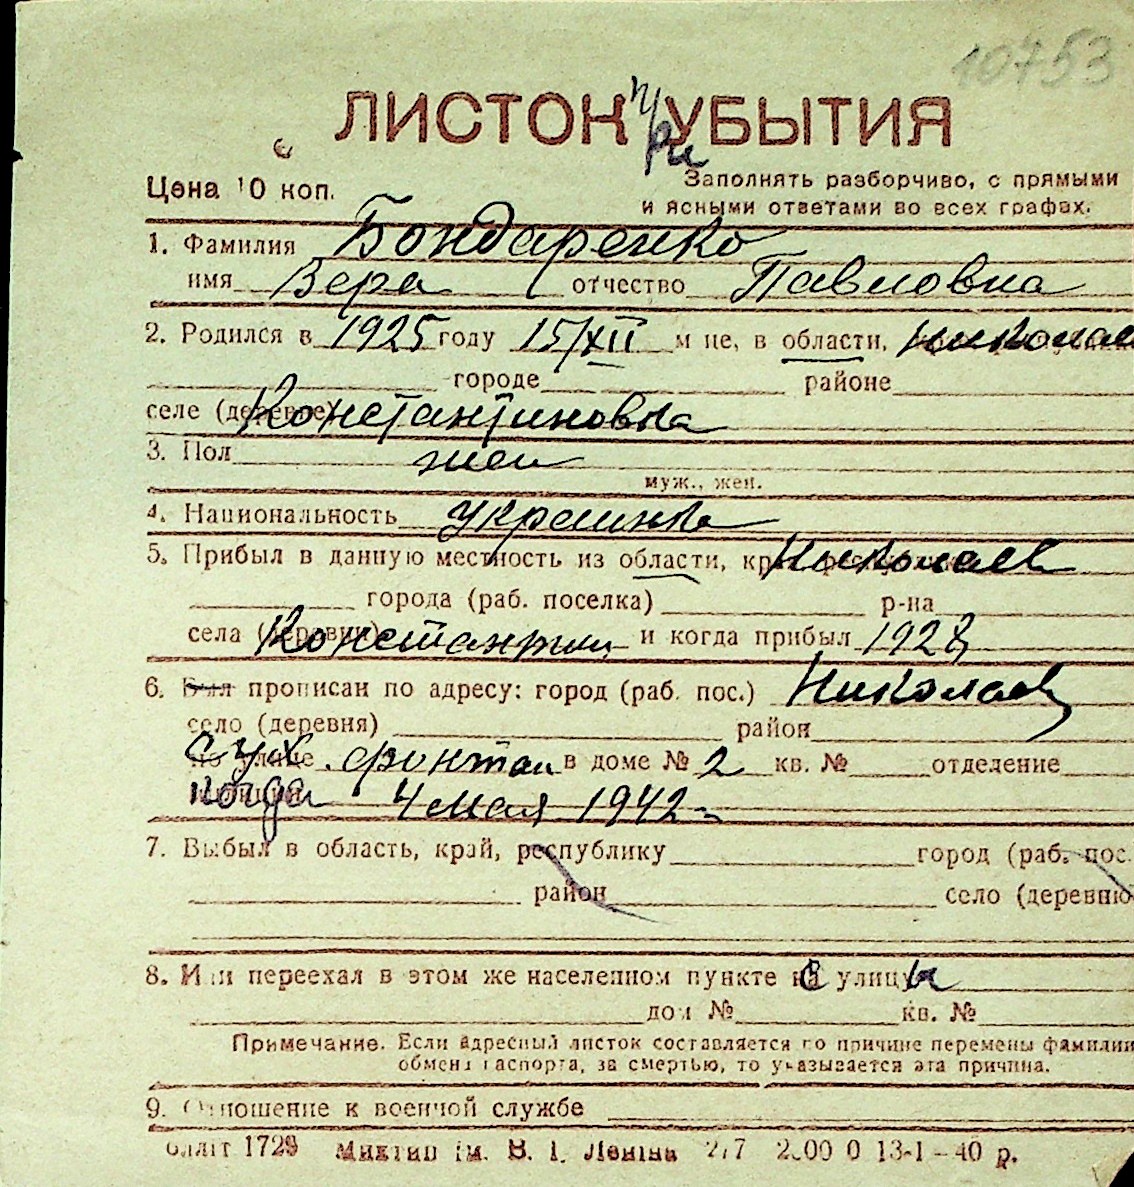 10753
ЛИСТОК УБЫТИЯ
Цена 10 коп.
Заполнять разборчиво, с прямыми
и ясными ответами во всех графах.
1. Фамилия Бондаренко
имя Вера отчество Павловна
2. Родился в 1925 году 15/XII м-це, в области, Николаев
городе районе
селе (деревне) Константиновка
3. Пол жен
муж., жен.
4. Национальность украинка
5. Прибыл в данную местность из области, Николаев
города (раб. поселка) р-на
села (деревни) Константин и когда прибыл 1928
6. Был прописан по адресу: город (раб. пос.) Николаев
село (деревня) район
по улице сух. фонтан в доме № 2 кв. № отделение
когда 4 мая 1942
7. Выбыл в область, край, республику город (раб. пос.
район село (деревню
8. Или переехал в этом же населенном пункте с улицы
дом № кв. №
Примечание. Если адресный листок составляется по причине перемены фамилии
обмена паспорта, за смертью, то указывается эта причина.
9. Отношение к военной службе
1729 ім. В. І. Леніна 13-I-40 р.